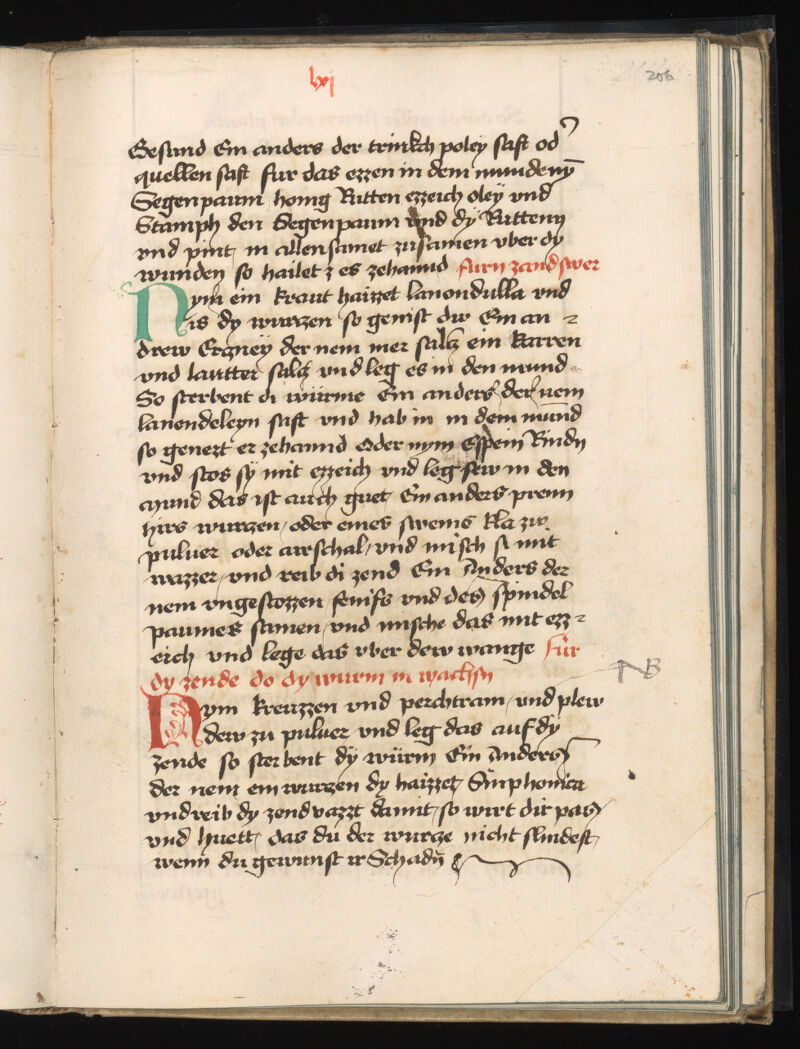 lxj
206
Gesund Ein anders der trinkch poley saft od
quellen saft fur das ezzen in dem munde nÿ
Segenpaum honig Rutten ezzeich oleÿ vnd
Stamph den Segenpaum vnd dÿ Rutten
vnd pint in allensamet zusamen vber dy
wunden so hailet z es zehannd furn zandswer
Nym ein kraut haizzet lauondulla vnd
is dy wurczen so genist dw Ein an
drew Erzney der nem mer salcz ein karren
vnd lautter salcz vnd leg es in den mund
So sterbent di würme Ein anders der nem
lauendeleyn saft vnd hab in in dem mund
so genezt er zehannd Oder nym Espein Rindn
vnd stos sÿ mit ezzeich vnd leg sew in den
mund das ist auch guet Ein anders prenn
hirs wurczen oder eines sweins kla zw
puluer oder airschal vnd misch si mit
wazzer vnd reib di zend Ein Anders der
nem vngestozzen senifs vnd des spindel
paumes samen vnd mische das mit ezz
eich vnd lege das vber dew wange Für
dy zende do dy wurm in wachsn
NB
Nym kreuzzen vnd perchtram vnd plew
dew zu puluer vnd leg das auf dÿ
zende so sterbent dÿ würm Ein Anders
der nem ein wurczen dy haizzet Simphonica
vnd reib dy zend vazzt damit so wirt dir pas
vnd huett das du der wurcze nicht slindest
wenn du gewunst ir Schadn